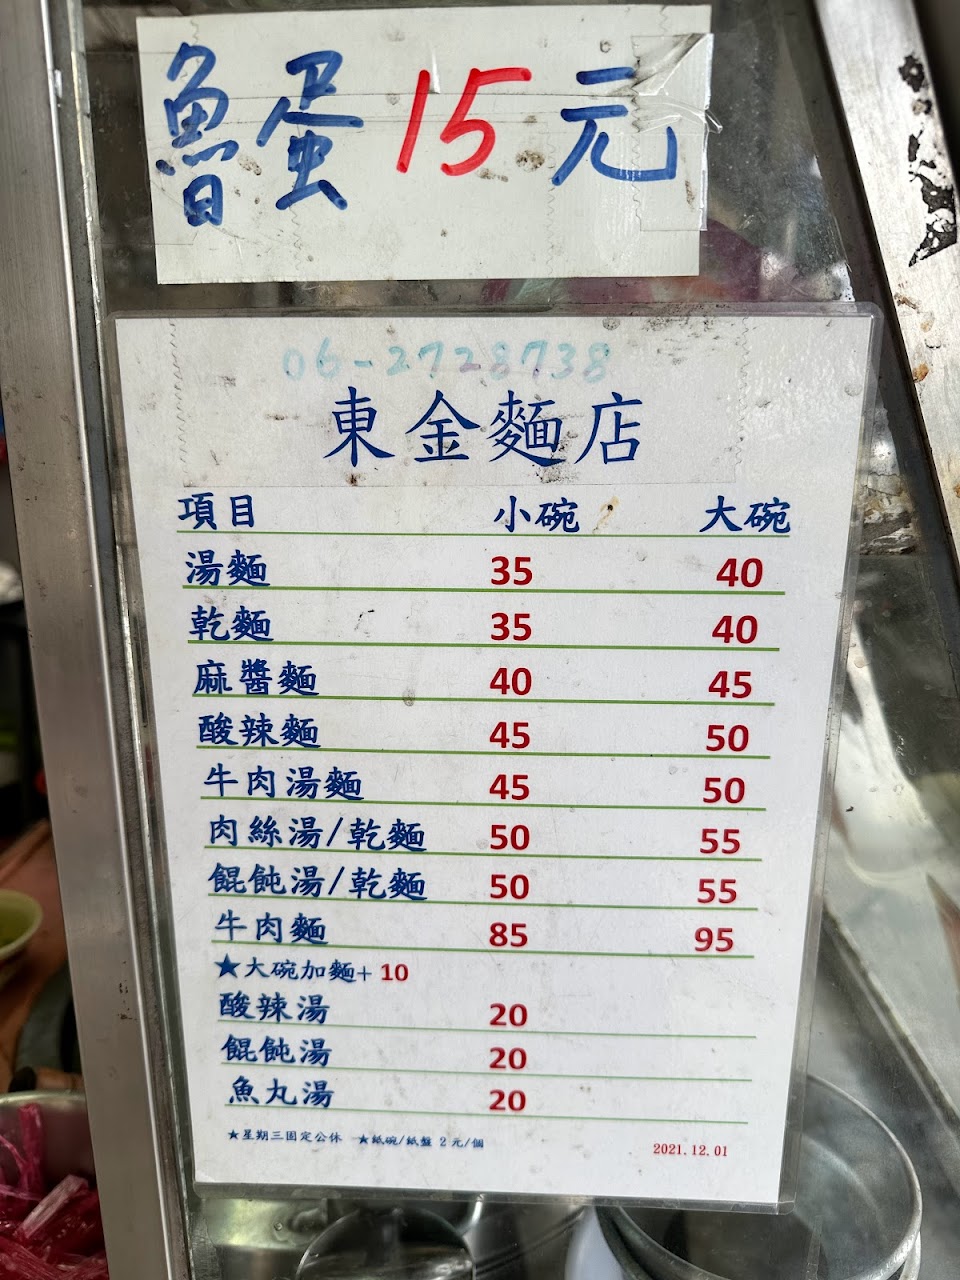 魯蛋15元
06-2728738
東金麵店
項目 小碗 大碗
湯麵 35 40
乾麵 35 40
麻醬麵 40 45
酸辣麵 45 50
牛肉湯麵 45 50
肉絲湯/乾麵 50 55
餛飩湯/乾麵 50 55
牛肉麵 85 95
★大碗加麵+ 10
酸辣湯 20
餛飩湯 20
魚丸湯 20
★星期三固定公休 ★紙碗/紙盤 2元/個 2021.12.01